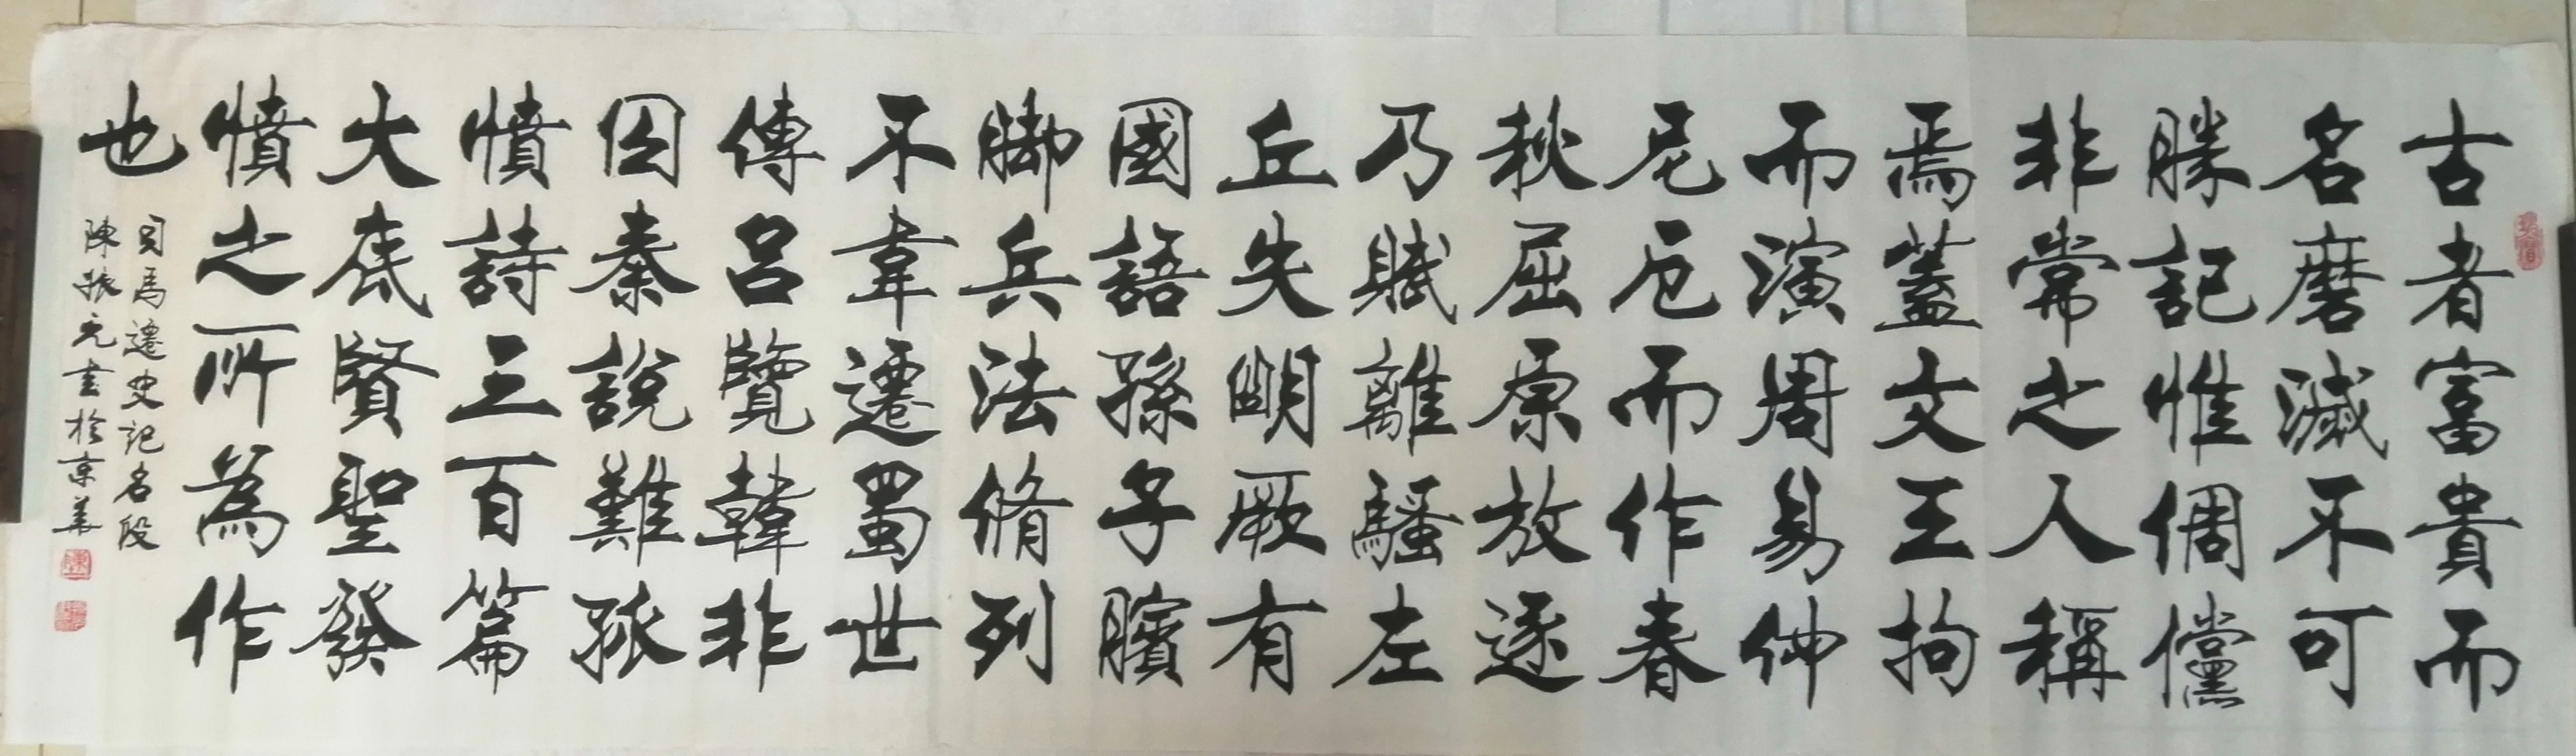 古者富貴而
名磨滅不可
勝記惟倜儻
非常之人稱
焉蓋文王拘
而演周易仲
尼厄而作春
秋屈原放逐
乃賦離騷左
丘失明厥有
國語孫子臏
脚兵法脩列
不韋遷蜀世
傳呂覽韓非
囚秦説難孤
憤詩三百篇
大底賢聖發
憤之所為作
也
司馬遷史記名段
陳振元書於京華